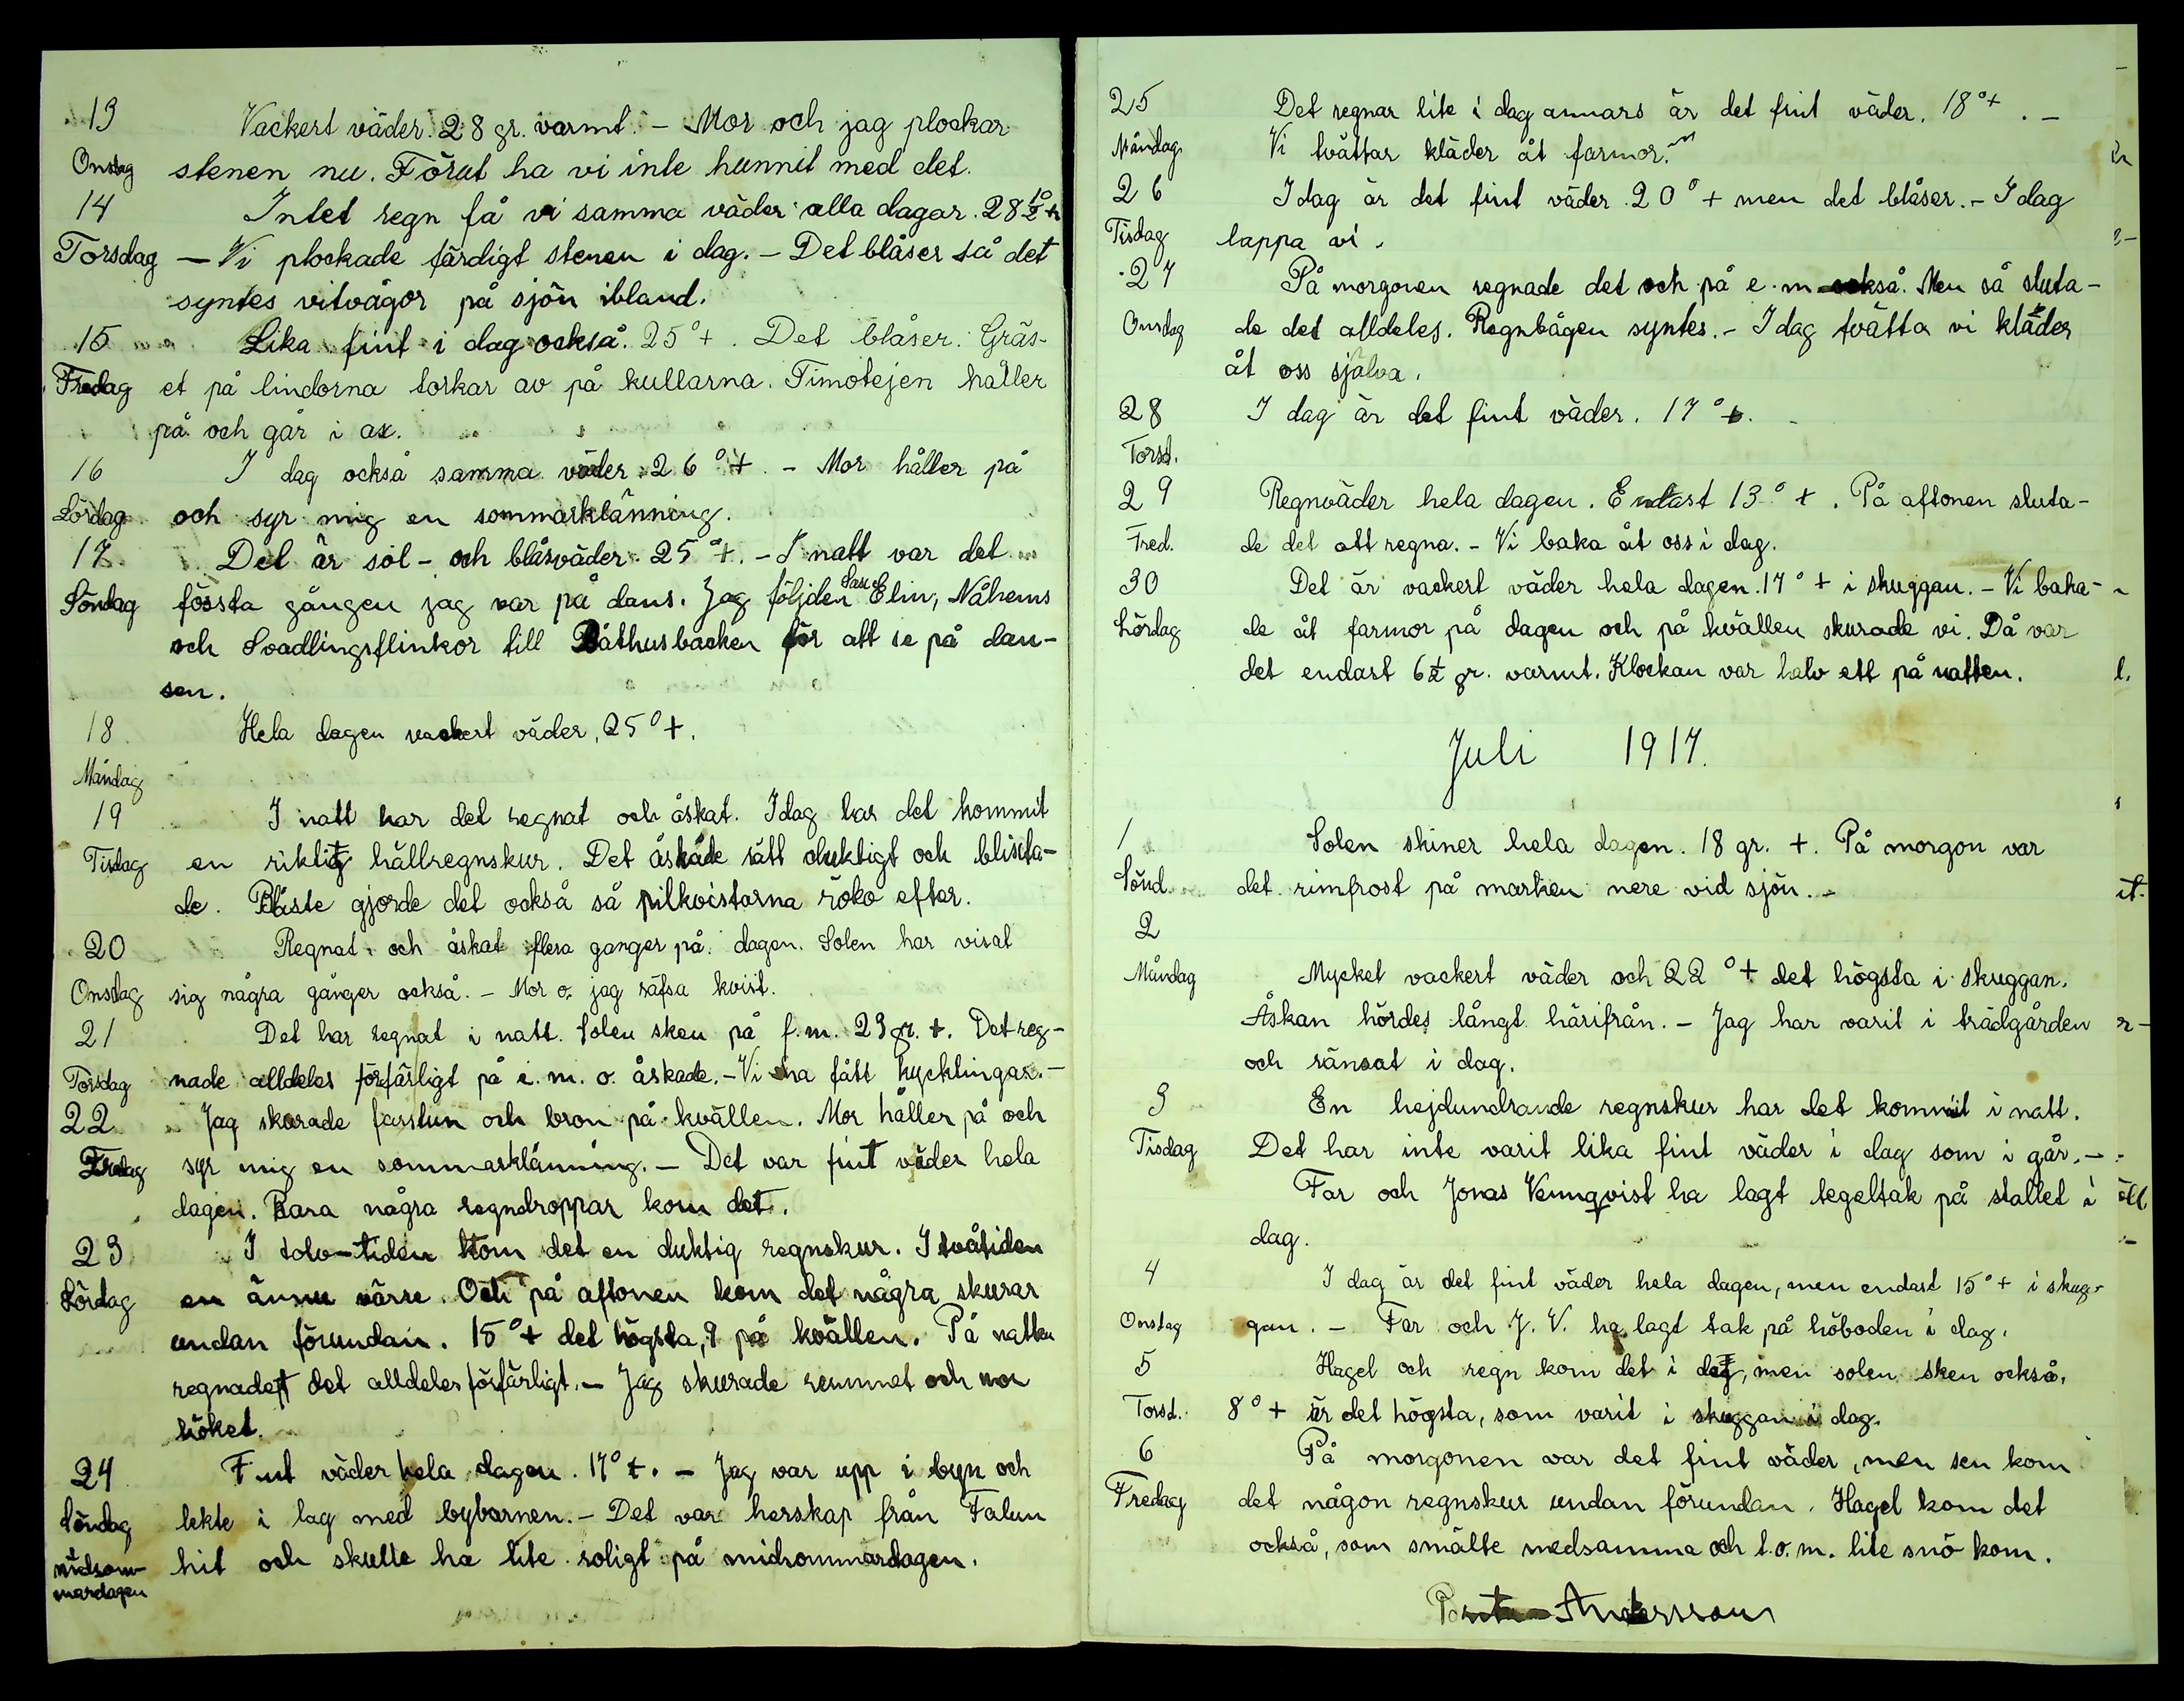 13 Vackert väder. 28 gr. varmt. - Mor och jag plockar
Onsdag stenen nu. Förut ha vi inte hunnit med det.
14 Intet regn få vi samma väder alla dagar. 28
Torsdag - Vi plockade färdigt stenen i dag. - Det blåser så det
syntes vitvågor på sjön ibland.
15 Lika fint i dag också. 25° +. Det blåser. Gräs-
Fredag et på lindorna torkar av på kullarna. Timotejen håller
på och går i ax.
16 I dag också samma väder. 26° +. - Mor håller på
Lördag och syr mig en sommarklänning.
17. Det är sol- och blåsväder. 25° +. - I natt var det
Söndag fössta gången jag var på dans. Jag följden Elin, Nåhems
och Svadlingsflinkor till Båthusbacken för att se på dan-
sen.
18. Hela dagen vackert väder, 25° +.
Måndag
19 I natt har det regnat och åskat. Idag har det kommit
Tisdag en riktig hällregnskur. Det åskade rätt duktigt och blixta-
de. Blåste gjorde det också så pilkvistarna röko efter.
20 Regnat och åskat flera ganger på dagen. Solen har visat
Onsdag sig några gånger också. - Mor o. jag räfsa kvist.
21 Det har regnat i natt. Solen sken på f.m. 23 gr. +. Det reg-
Torsdag nade alldeles förfärligt på e. m. o. åskade. - Vi ha fått kycklingar. -
22 Jag skurade farstun och bron på kvällen. Mor håller på och
Fredag syr mig en sommarklänning. - Det var fint väder hela
dagen. Bara några regndroppar kom det.
23 I tolv-tiden kom det en duktig regnskur. I tvåtiden
Lördag en ännu värre. Och på aftonen kom det några skurar
undan förundan. 15° + det högsta, 9 på kvällen. På natten
regnadet det alldeles förfärligt. - Jag skurade rummet och mor
köket.
24 Fint väder hela dagen. 17° +. - Jag var upp i byn och
Söndag lekte i lag med bybarnen. - Det var herskap från Falun
midsom- hit och skulle ha lite roligt på midsommardagen.
mardagen
25 Det regnar lite i dag annars är det fint väder. 18° +. -
Måndag Vi tvättar kläder åt farmor.
26 Idag är det fint väder. 20° + men det blåser. - I dag
Tisdag lappa vi.
27 På morgonen regnade det och på e. m också. Men så sluta-
Onsdag de det alldeles. Regnbågen syntes. - Idag tvätta vi kläder
åt oss själva.
28 I dag är det fint väder. 17° +.
Torsd.
29 Regnväder hela dagen. Endast 13° +. På aftonen sluta-
Fred. de det att regna. - Vi baka åt oss i dag.
30 Det är vackert väder hela dagen. 17° + i skuggan. - Vi baka-
Lördag de åt farmor på dagen och på kvällen skurade vi. Då var
det endast 6½ gr. varmt. Klockan var halv ett på natten.
Juli 1917.
1 Solen skiner hela dagen. 18 gr. +. På morgon var
Sönd. det rimfrost på marken nere vid sjön. -
2
Måndag Mycket vackert väder och 22° + det högsta i skuggan.
Åskan hördes långt härifrån. - Jag har varit i trädgården
och ränsat i dag.
3 En hejdundrande regnskur har det kommit i natt.
Tisdag Det har inte varit lika fint väder i dag som i går. -
Far och Jonas Vennqvist ha lagt tegeltak på stallet i
dag.
4 I dag är det fint väder hela dagen, men endast 15° + i skug-
Onsdag gan. - Far och J. V. ha lagt tak på höboden i dag.
5 Hagel och regn kom det i dag, men solen sken också.
Torsd. 8° + är det högsta, som varit i skuggan i dag.
6 På morgonen var det fint väder, men sen kom
Fredag det någon regnskur undan förundan. Hagel kom det
också, som smälte medsamma och t.o.m. lite snö kom.
Andersson